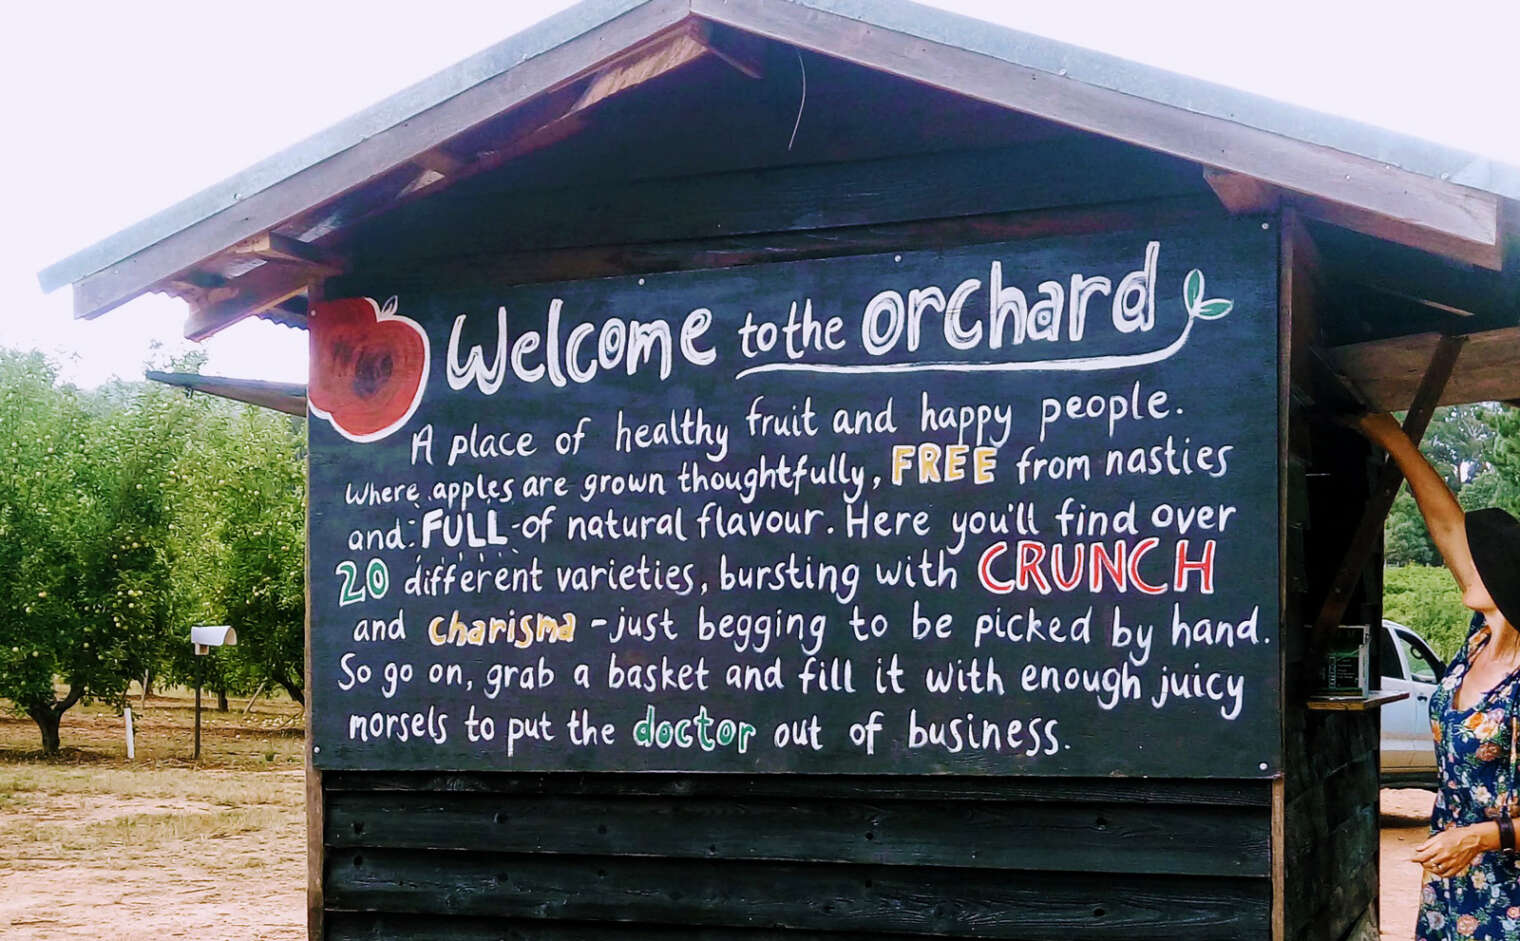 Welcome to the orchard
A place of healthy fruit and happy people.
Where apples are grown thoughtfully, FREE from nasties
and FULL of natural flavour. Here you'll find over
20 different varieties, bursting with CRUNCH
and charisma - just begging to be picked by hand.
So go on, grab a basket and fill it with enough juicy
morsels to put the doctor out of business.